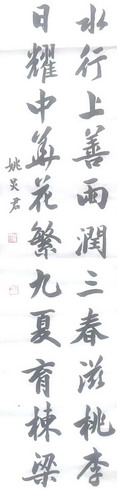 水行上善雨潤三春滋桃李
日耀中華花繁九夏育棟梁
姚炎君